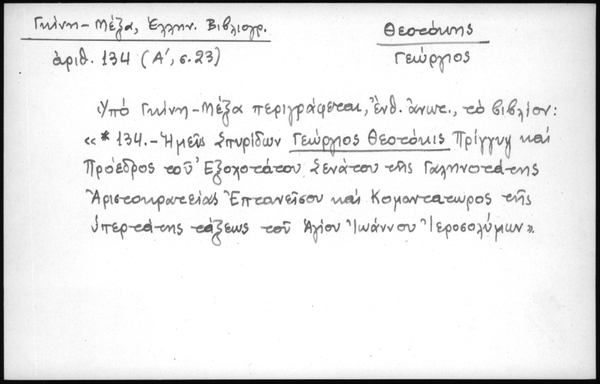 Γκίνη-Μέξα, Ἑλλην. Βιβλιογρ.
ἀριθ. 134 (Α΄, σ. 23)
Θεοτόκης
Γεώργιος
Ὑπό Γκίνη-Μέξα περιγράφεται, ἔνθ. ἄνωτ., τό βιβλίον:
«* 134.- Ἡμεῖς Σπυρίδων Γεώργιος Θεοτόκις Πρίγγιψ καί
Πρόεδρος τοῦ Ἐξοχοτάτου Σενάτου τῆς Γαληνοτάτης
Ἀριστοκρατείας Ἑπτανείσου καί Κομαντατωρος τῆς
ὑπερτάτης τάξεως τοῦ Ἁγίου Ἰωάννου Ἱεροσολύμων».